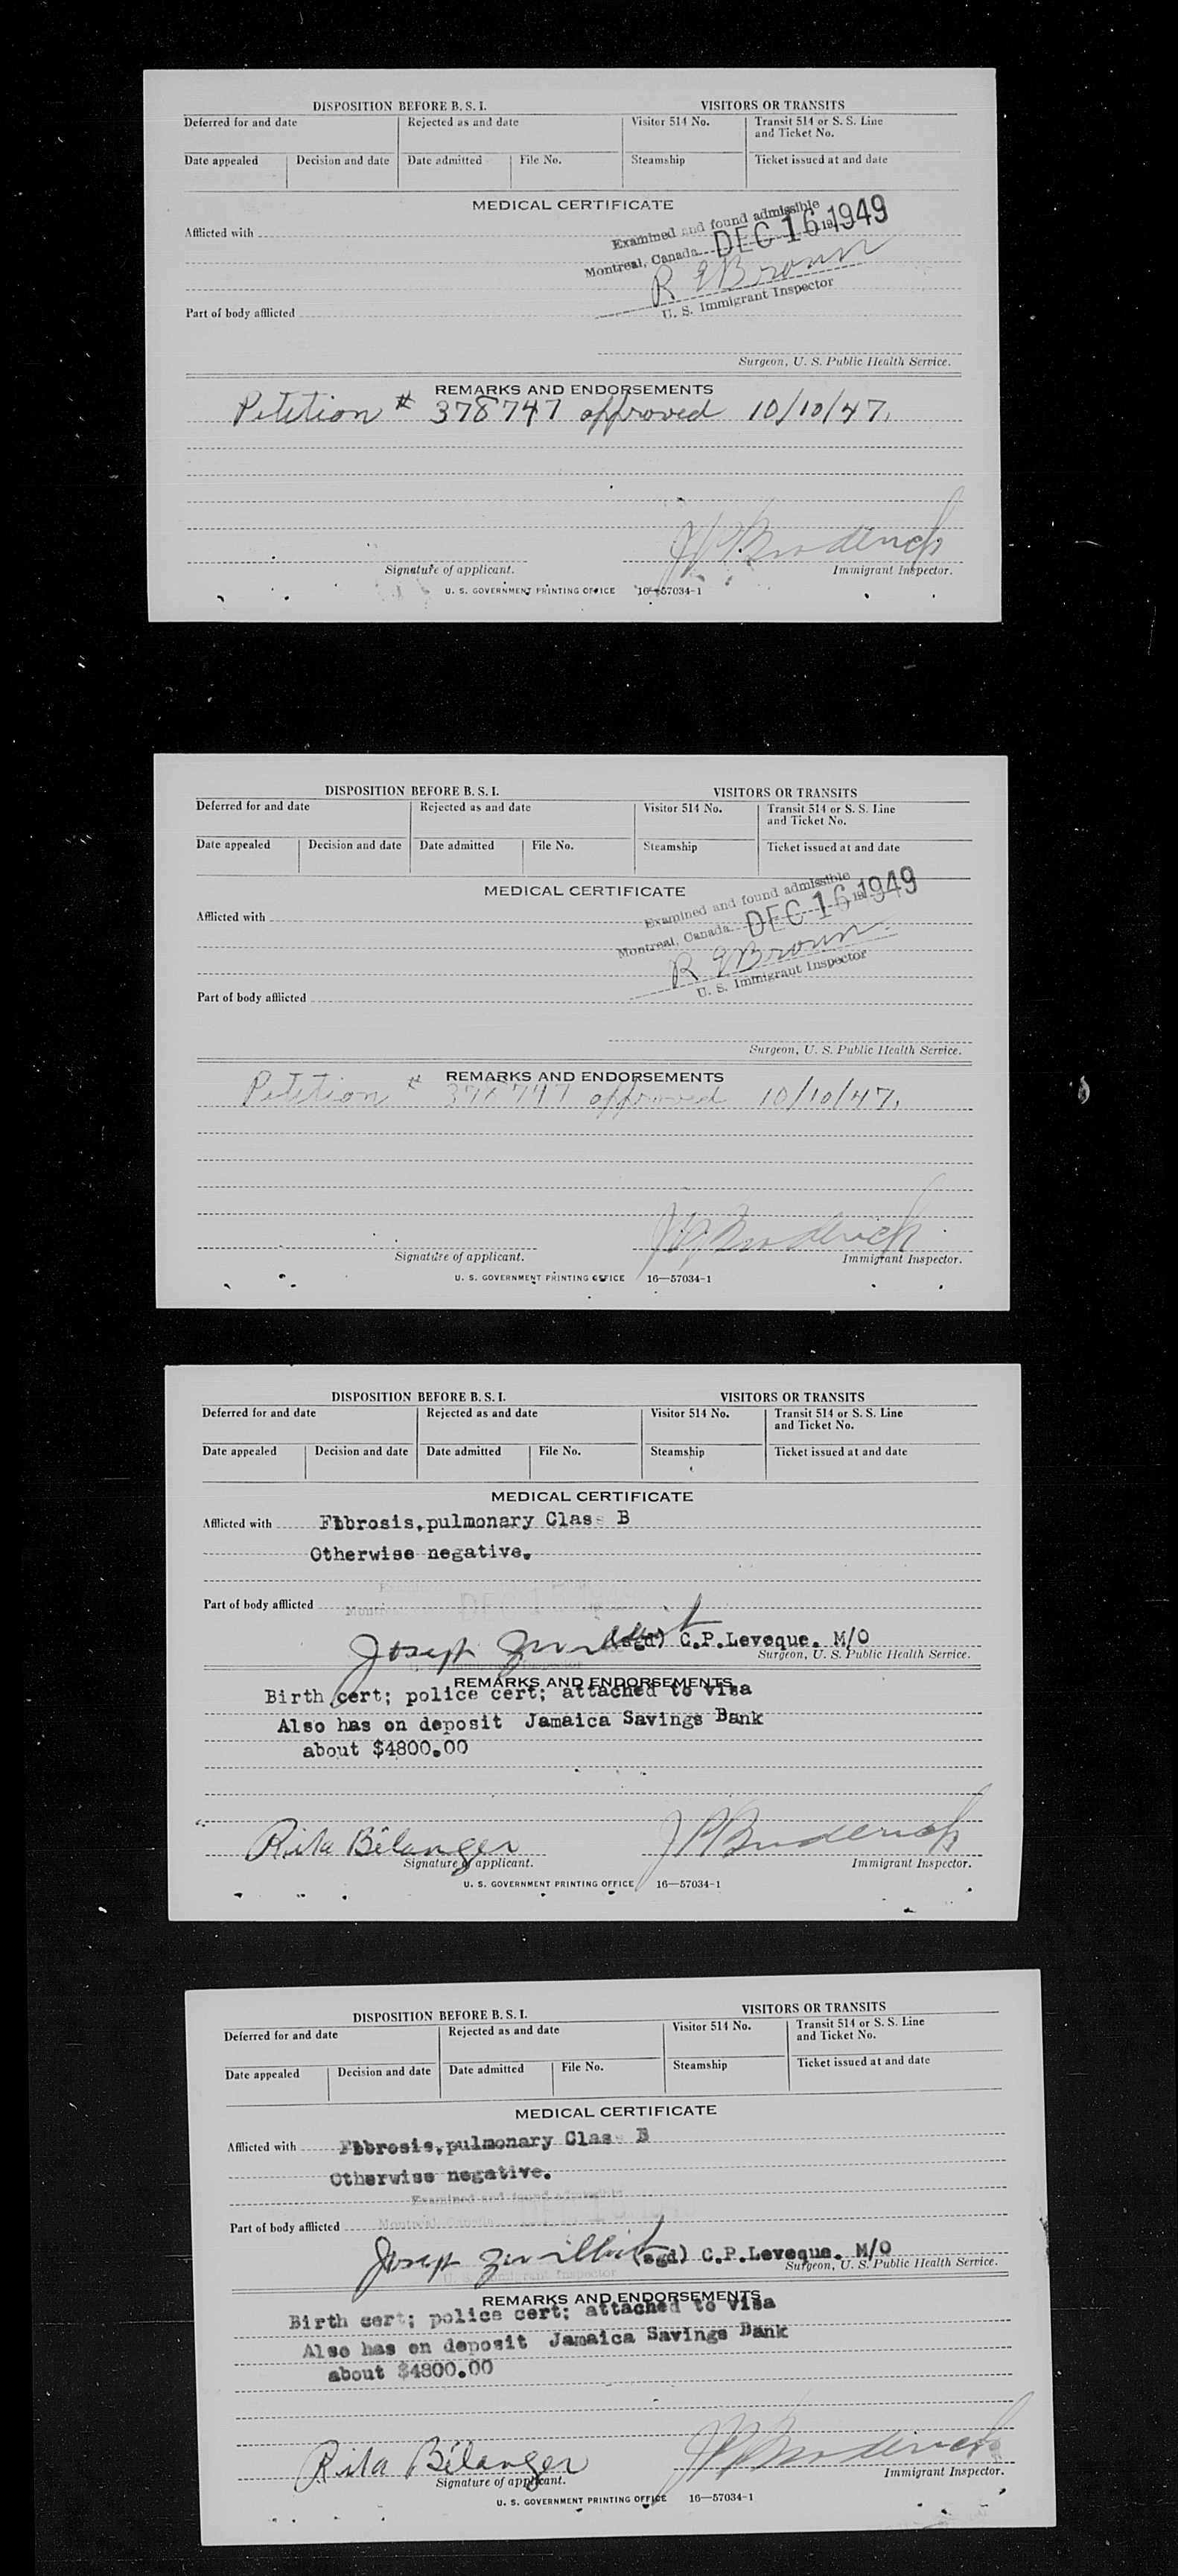 DISPOSITION BEFORE B. S. I. VISITORS OR TRANSITS
Deferred for and date Rejected as and date Visitor 514 No. Transit 514 or S. S. Line
and Ticket No.
Date appealed Decision and date Date admitted File No. Steamship Ticket issued at and date
MEDICAL CERTIFICATE
Examined and found admissible
Afflicted with
Montreal, Canada DEC 16 19 1949
R E Brown
U. S. Immigrant Inspector
Part of body afflicted
Surgeon, U. S. Public Health Service.
REMARKS AND ENDORSEMENTS
Petition # 378747 approved 10/10/47.
J P Broderick
Signature of applicant. Immigrant Inspector.
U. S. GOVERNMENT PRINTING OFFICE 16—57034-1
DISPOSITION BEFORE B. S. I. VISITORS OR TRANSITS
Deferred for and date Rejected as and date Visitor 514 No. Transit 514 or S. S. Line
and Ticket No.
Date appealed Decision and date Date admitted File No. Steamship Ticket issued at and date
MEDICAL CERTIFICATE
Examined and found admissible
Afflicted with
Montreal, Canada DEC 16 19 1949
R E Brown
U. S. Immigrant Inspector
Part of body afflicted
Surgeon, U. S. Public Health Service.
REMARKS AND ENDORSEMENTS
Petition # 378747 approved 10/10/47.
J P Broderick
Signature of applicant. Immigrant Inspector.
U. S. GOVERNMENT PRINTING OFFICE 16—57034-1
DISPOSITION BEFORE B. S. I. VISITORS OR TRANSITS
Deferred for and date Rejected as and date Visitor 514 No. Transit 514 or S. S. Line
and Ticket No.
Date appealed Decision and date Date admitted File No. Steamship Ticket issued at and date
MEDICAL CERTIFICATE
Afflicted with Fibrosis, pulmonary Class B
Otherwise negative.
Part of body afflicted
Joseph (sgd) C.P.Leveque. M/O
Surgeon, U. S. Public Health Service.
REMARKS AND ENDORSEMENTS
Birth cert; police cert; attached to visa
Also has on deposit Jamaica Savings Bank
about $4800.00
Rita Bélanger J P Broderick
Signature of applicant. Immigrant Inspector.
U. S. GOVERNMENT PRINTING OFFICE 16—57034-1
DISPOSITION BEFORE B. S. I. VISITORS OR TRANSITS
Deferred for and date Rejected as and date Visitor 514 No. Transit 514 or S. S. Line
and Ticket No.
Date appealed Decision and date Date admitted File No. Steamship Ticket issued at and date
MEDICAL CERTIFICATE
Afflicted with Fibrosis, pulmonary Class B
Otherwise negative.
Examined and found admissible
Part of body afflicted Montreal, Canada
Joseph (sgd) C.P.Leveque. M/O
Surgeon, U. S. Public Health Service.
U. S. Immigrant Inspector
REMARKS AND ENDORSEMENTS
Birth cert; police cert; attached to visa
Also has on deposit Jamaica Savings Bank
about $4800.00
Rita Bélanger J P Broderick
Signature of applicant. Immigrant Inspector.
U. S. GOVERNMENT PRINTING OFFICE 16—57034-1